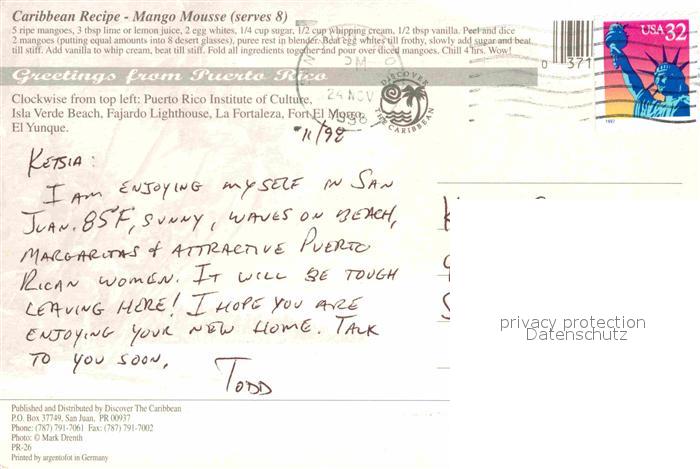 Caribbean Recipe - Mango Mousse (serves 8)
5 ripe mangoes, 3 tbsp lime or lemon juice, 2 egg whites, 1/4 cup sugar, 1/2 cup whipping cream, 1/2 tbsp vanilla. Peel and dice
2 mangoes (putting equal amounts into 8 desert glasses), puree rest in blender. Beat egg whites till frothy, slowly add sugar and beat
till stiff. Add vanilla to whip cream, beat till stiff. Fold all ingredients together and pour over diced mangoes. Chill 4 hrs. Wow!
Greetings from Puerto Rico
Clockwise from top left: Puerto Rico Institute of Culture,
Isla Verde Beach, Fajardo Lighthouse, La Fortaleza, Fort El Morro,
El Yunque.
PM
24 NOV
1998
DISCOVER
THE CARIBBEAN
0 371
USA 32
1997
11/98
KETSIA:
I AM ENJOYING MYSELF IN SAN
JUAN. 85F, SUNNY, WAVES ON BEACH,
MARGARITAS & ATTRACTIVE PUERTO
RICAN WOMEN. IT WILL BE TOUGH
LEAVING HERE! I HOPE YOU ARE
ENJOYING YOUR NEW HOME. TALK
TO YOU SOON,
TODD
privacy protection
Datenschutz
Published and Distributed by Discover The Caribbean
P.O. Box 37749, San Juan, PR 00937
Phone: (787) 791-7061 Fax: (787) 791-7002
Photo: © Mark Drenth
PR-26
Printed by argentofot in Germany